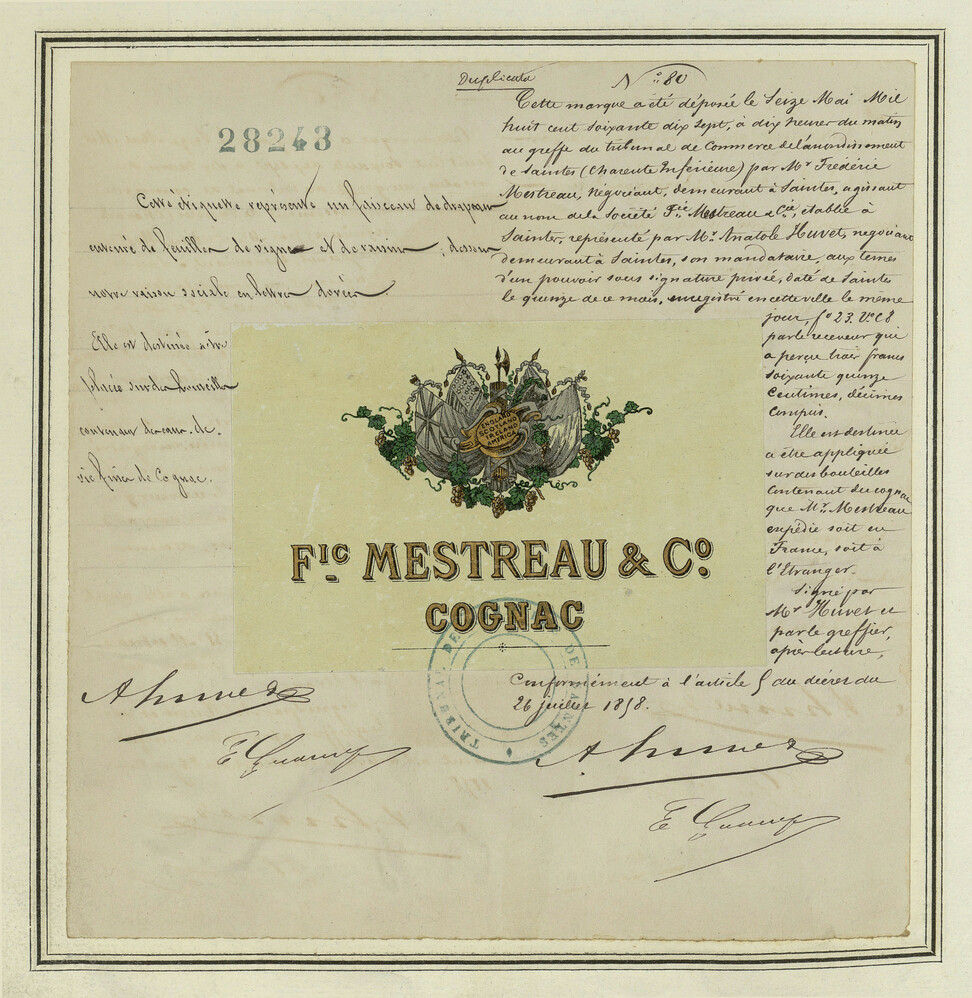 Duplicata
N° 80
28243
Cette marque a été déposée le Seize Mai Mil
huit cent soixante dix sept, à dix heures du matin
au greffe du tribunal de Commerce de l'arrondissement
de Saintes (Charente Inférieure) par Mr Frédéric
Mestreau, Négociant, demeurant à Saintes, agissant
au nom de la Société Fic Mestreau & Cie, établie à
Saintes, représenté par Mr Anatole Huvet, négociant
demeurant à Saintes, son mandataire, aux termes
d'un pouvoir sous signature privée, daté de Saintes
le quinze de ce mois, enregistré en cette ville le même
jour, fo 23. Vo C8
par le receveur qui
a perçu trois francs
soixante quinze
centimes, décimes
compris.
Elle est destinée
a être appliquée
sur des bouteilles
contenant du cognac
que Mr Mestreau
expédie soit en
France, soit à
l'Etranger.
Signé par
Mr Huvet et
par le greffier,
après lecture,
Conformément à l'article 5 du décret du
26 juillet 1858.
Cette étiquette représente un faisceau de drapeaux
entouré de feuilles de vigne et de raisins, dessous
notre raison sociale en lettres dorées.
Elle est destinée à être
placée sur des bouteilles
contenant des eaux-de-
vie fines de Cognac.
ENGLAND
SCOTLAND
IRELAND
AMERICA
Fic MESTREAU & Co
COGNAC
TRIBUNAL DE
A. Huvet
A. Huvet